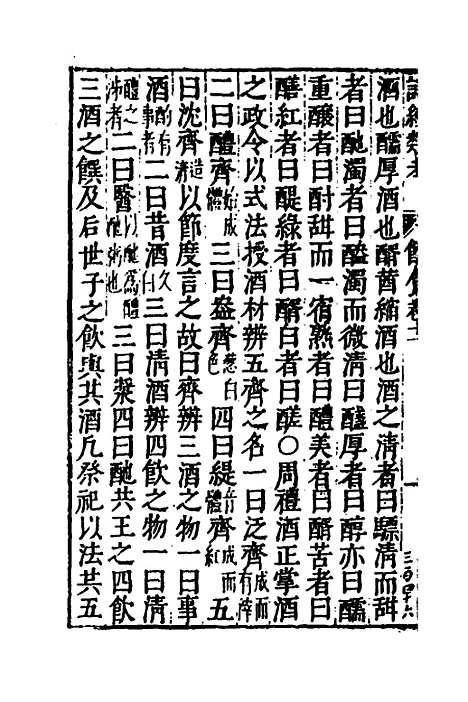 酒也醹厚酒也醑莤縮酒也酒之清者曰醥清而甜
者曰酏濁者曰醠濁而微清曰醆厚者曰醇亦曰醹
重釀者曰酎甜而一宿熟者曰醴美者曰醑苦者曰
醨紅者曰醍綠者曰醽白者曰醝〇周禮酒正掌酒
之政令以式法授酒材辨五齊之名一曰泛齊成而有滓
二曰醴齊始成體三曰盎齊蔥白色四曰緹音體齊成而紅五
曰沈齊造清以節度言之故曰齊辨三酒之物一曰事
酒酌有事者二曰昔酒久白三曰清酒辨四飲之物一曰清
醴之沛者二曰醫以酏為醴酏粥也三曰漿四曰酏共王之四飲
三酒之饌及后世子之飲與其酒凡祭祀以法共五